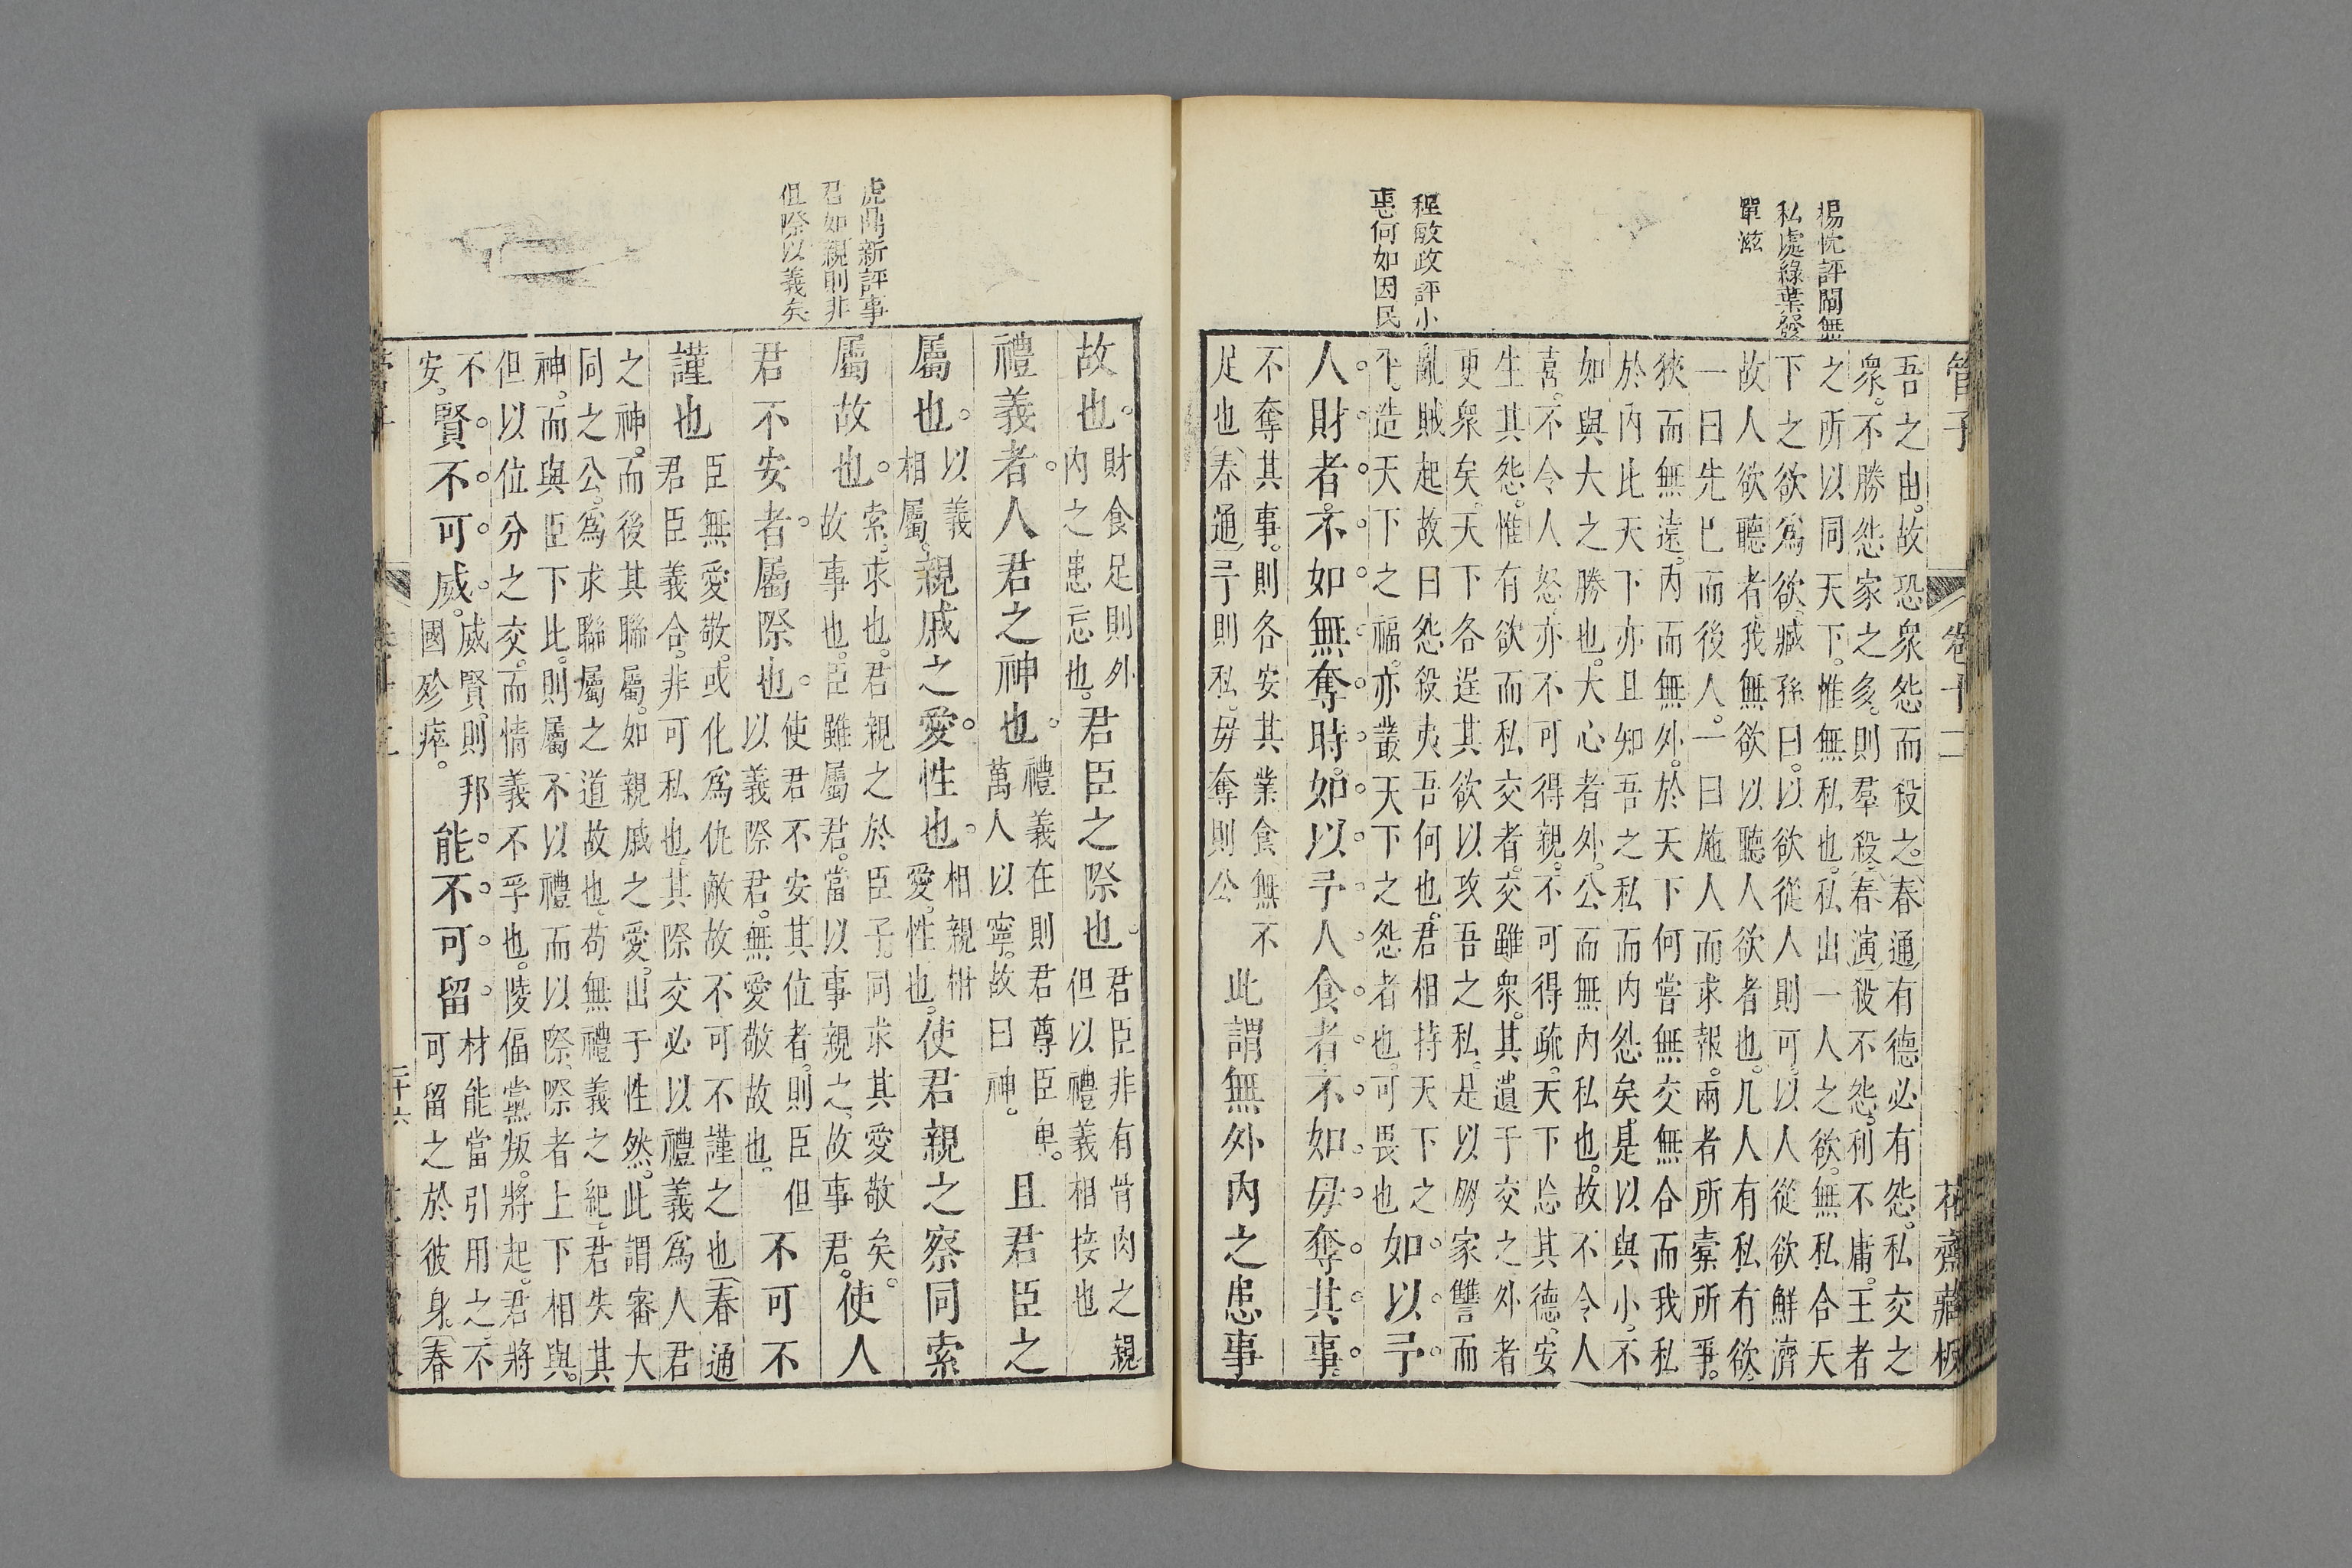 管子
卷十二
花齋藏板
楊忱評閫無
私處綠葉發
單滋
程敏政評小
恚何如因民
吾之由故恐衆怨而殺之春通有德必有怨私交之
衆不勝怨家之多則羣殺春演殺不怨利不庸王者
之所以同天下惟無私也私出一人之欲無私合天
下之欲爲欲臧孫曰以欲從人則可以人從欲鮮濟
故人欲聽者我無欲以聽人欲者也凡人有私有欲
一曰先巳而後人一曰施人而求報兩者所索所爭
狹而無遠内而無外於天下何嘗無交無合而我私
於内比天下亦且知吾之私而内怨矣是以與小不
如與大之勝也大心者外公而無内私也故不令人
喜不令人怒亦不可得親不可得疏天下忘其德安
生其怨惟有欲而私交者交雖衆其遺于交之外者
更衆矣天下各逞其欲以攻吾之私是以朋家讐而
亂賊起故曰怨殺夷吾何也君相持天下之
乎造天下之福亦叢天下之怨者也可畏也
如以予
人財者不如無奪時如以予人食者不如毋奪其事
不奪其事則各安其業食無不
足也春通予則私毋奪則公
此謂無外内之患事
虎鼎新評事
君如親則非
但際以義矣
故也
財食足則外
内之患忘也
君臣之際也
君臣非有骨肉之親
但以禮義相接也
禮義者人君之神也
禮義在則君尊臣卑
萬人以寧故曰神
且君臣之
屬也
以義
相屬
親戚之愛性也
相親相
愛性也
使君親之察同索
屬故也
索求也君親之於臣子同求其愛敬矣
故事也臣雖屬君當以事親之故事君
使人
君不安者屬際也
使君不安其位者則臣但
以義際君無愛敬故也
不可不
謹也
臣無愛敬或化爲仇敵故不可不謹之也春通
君臣義合非可私也其際交必以禮義爲人君
之神而後其聯屬如親戚之愛出于性然此謂審大
同之公爲求聯屬之道故也苟無禮義之紀君失其
神而與臣下比則屬不以禮而以際際者上下相與
但以位分之交而情義不孚也陵偪黨叛將起君將
不
安
賢不可威
威賢則邦
國殄瘁
能不可留
材能當引用之不
可留之於彼身春
二十六